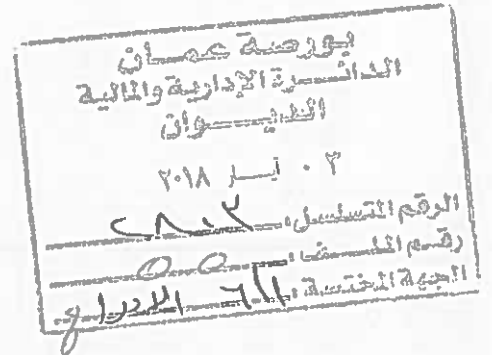 بورصة عمـــان
الدائـــرة الإدارية والمالية
الديـــوان
٠٣ أيـــار ٢٠١٨
الرقم المتسلسل: ٢٨٠٢
رقـــم الملـــف:
الجهة المختصة: